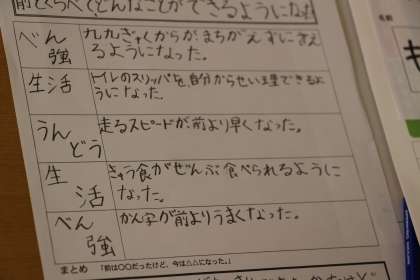 前とくらべて、どんなことができるようになった
べん強
九九ぎゃくからが、まちがえずにさえ
るようになった。
生活
トイレのスリッパを、自分からせい理できるよ
うになった。
うんどう
走るスピードが、前より早くなった。
生活
きゅう食がぜんぶ食べられるように
なった。
べん強
かん字が前よりうまくなった。
まとめ 「前は〇〇だったけど、今は△△になった。」
名前